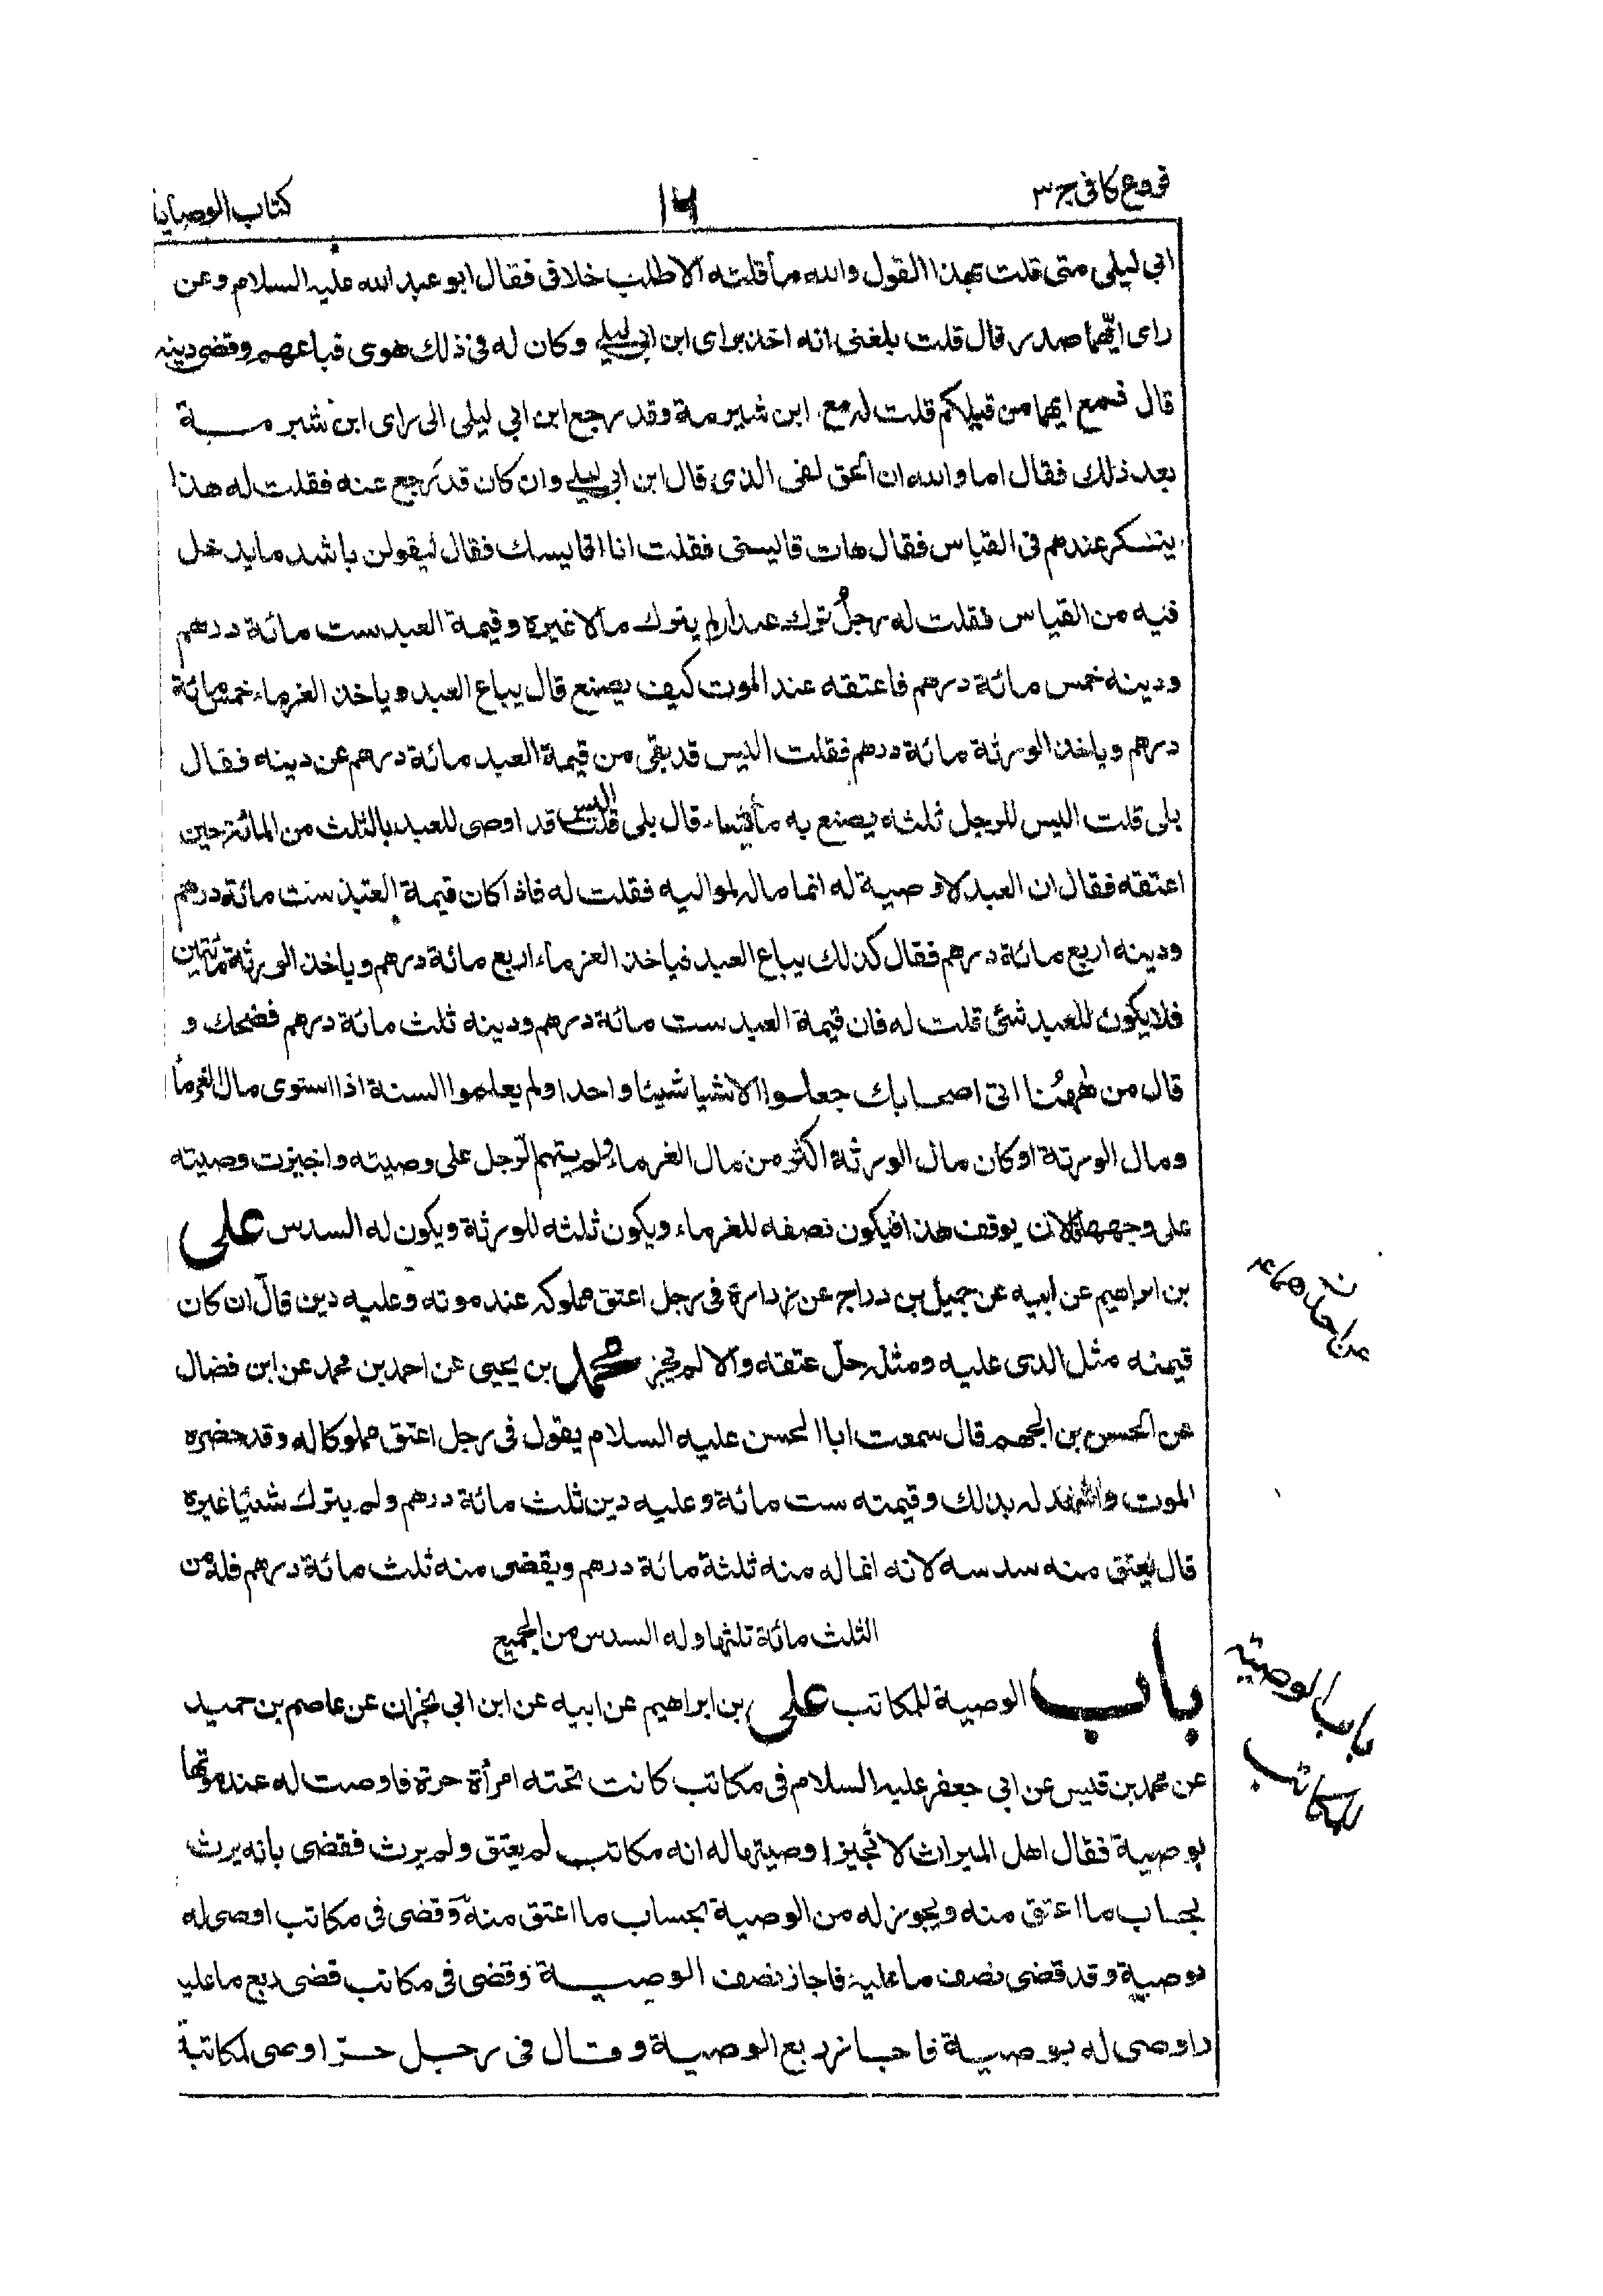 فروع كافى ج ٣
١٦
كتاب الوصايا
ابى ليلى متى قلت بهذا القول والله ما قلته الا طلب خلافى فقال ابو عبد الله عليه السلام وعن
راى ايهما صدر قال قلت بلغنى انه اخذ براى ابن ابى ليلى وكان له فى ذلك هوى فباعهم وقضى دينه
قال فمع ايهما من قبلكم قلت له مع ابن شبرمة وقد رجع ابن ابى ليلى الى راى ابن شبرمــة
بعد ذلك فقال اما والله ان الحق لفى الذى قال ابن ابى ليلى وان كان قد رجع عنه فقلت له هذا
ينكسر عندهم فى القياس فقال هات قايسنى فقلت انا اقايسك فقال ليقولن باشد ما يدخل
فيه من القياس فقلت له رجل ترك عبدا لم يترك مالا غيره وقيمة العبد ست مائة درهم
ودينه خمس مائة درهم فاعتقه عند الموت كيف يصنع قال يباع العبد وياخذ الغرماء خمس مائة
درهم وياخذ الورثة مائة درهم فقلت اليس قد بقى من قيمة العبد مائة درهم عن دينه فقال
بلى قلت اليس للرجل ثلثه يصنع به ما يشاء قال بلى قلت اليس قد اوصى للعبد بالثلث من المائة حين
اعتقه فقال ان العبد لا وصية له انما ماله لمواليه فقلت له فاذا كان قيمة العبد ست مائة درهم
ودينه اربع مائة درهم فقال كذلك يباع العبد فياخذ الغرماء اربع مائة درهم وياخذ الورثة مائتين
فلا يكون للعبد شئ قلت له فان قيمة العبد ست مائة درهم ودينه ثلث مائة درهم فضحك و
قال من ههنا اتى اصحابك جعلوا الاشيا شيئا واحدا ولم يعلموا السنة اذا استوى مال الغرما
ومال الورثة او كان مال الورثة اكثر من مال الغرماء ولم يتهم الرجل على وصيته واجيزت وصيته
على وجهها فالان يوقف هذا فيكون نصفه للغرماء ويكون ثلثه للورثة ويكون له السدس على
بن ابراهيم عن ابيه عن جميل بن دراج عن زرارة فى رجل اعتق مملوكه عند موته وعليه دين قال ان كان
قيمته مثل الذى عليه ومثله جاز عتقه والا لم يجز محمد بن يحيى عن احمد بن محمد عن ابن فضال
عن الحسن بن الجهم قال سمعت ابا الحسن عليه السلام يقول فى رجل اعتق مملوكا له وقد حضره
الموت واشهد له بذلك وقيمته ست مائة وعليه دين ثلث مائة درهم ولم يترك شيئا غيره
قال يعتق منه سدسه لانه انما له منه ثلثة مائة درهم ويقضى منه ثلث مائة درهم فله من
الثلث مائة ثلثها وله السدس من الجميع
باب الوصية للمكاتب على بن ابراهيم عن ابيه عن ابن ابى نجران عن عاصم بن حميد
عن محمد بن قيس عن ابى جعفر عليه السلام فى مكاتب كانت تحته امرأة حرة فاوصت له عند موتها
بوصية فقال اهل الميراث لا نجيز وصيتها له انه مكاتب لم يعتق ولم يرث فقضى بانه يرث
بحساب ما اعتق منه ويجوز له من الوصية بحساب ما اعتق منه وقضى فى مكاتب اوصى له
بوصية وقد قضى نصف ما عليه فاجاز نصف الوصيــة وقضى فى مكاتب قضى ربع ما عليه
فاوصى له بوصية فاجاز ربع الوصية وقال فى رجل حر اوصى لمكاتبة
باب الوصية
للمكاتب